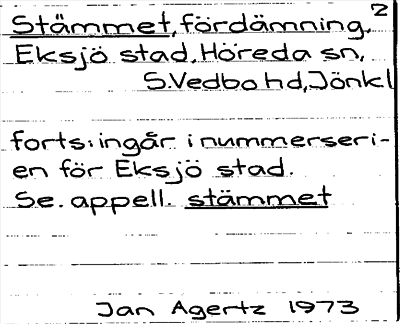 2
Stämmet, fördämning,
Eksjö stad, Höreda sn,
S.Vedbo hd, Jönkl
forts: ingår i nummerseri-
en för Eksjö stad.
Se. appell. stämmet
Jan Agertz 1973